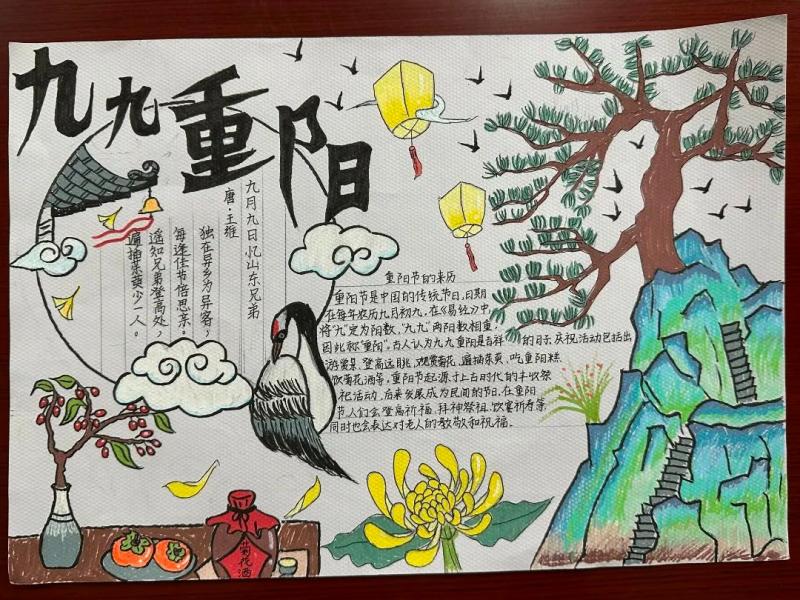 九九重阳
九月九日忆山东兄弟
唐·王维
独在异乡为异客，
每逢佳节倍思亲。
遥知兄弟登高处，
遍插茱萸少一人。
重阳节的来历
重阳节是中国的传统节日，日期
在每年农历九月初九，在《易经》中
将"九"定为阳数，"九九"两阳数相重，
因此称"重阳"。古人认为九九重阳是吉祥的日子，庆祝活动包括出
游赏景、登高远眺、观赏菊花、遍插茱萸、吃重阳糕
饮菊花酒等，重阳节起源于上古时代的丰收祭
祀活动，后来发展成为民间的节日，在重阳
节人们会登高祈福、拜神祭祖、饮宴祈寿等
同时也会表达对老人的敬和祝福。
菊花酒